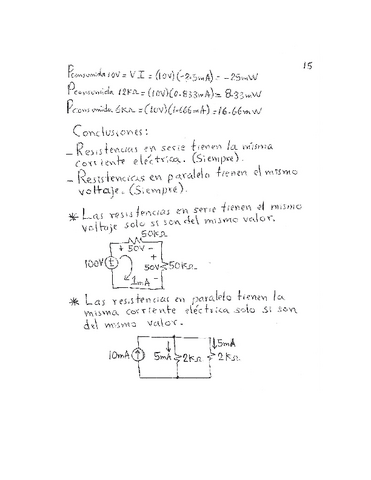 15
Pconsumida 10V = V I = (10V)(-2.5mA) = -25mW
Pconsumida 12KΩ = (10V)(0.833mA) = 8.33mW
Pconsumida 6KΩ = (10V)(1.666mA) = 16.66mW
Conclusiones:
- Resistencias en serie tienen la misma
corriente eléctrica. (Siempre).
- Resistencias en paralelo tienen el mismo
voltaje. (Siempre).
* Las resistencias en serie tienen el mismo
voltaje solo si son del mismo valor.
50KΩ
+ 50V -
100V
+
50V
-
50KΩ
1mA
* Las resistencias en paralelo tienen la
misma corriente eléctrica solo si son
del mismo valor.
10mA
5mA
2KΩ
5mA
2KΩ